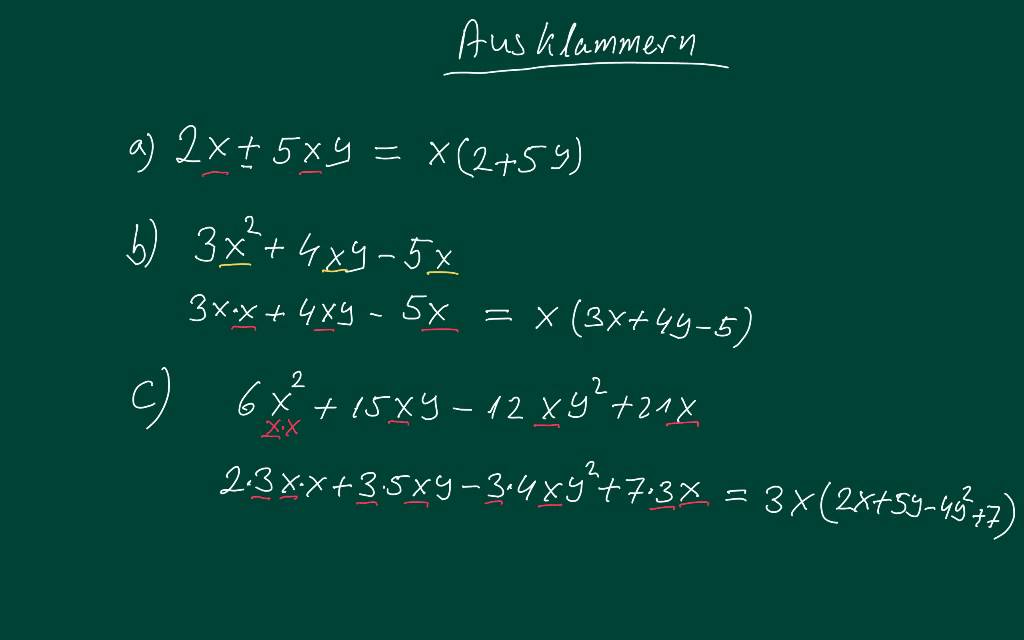 Ausklammern
a) 2x + 5xy = x(2+5y)
b) 3x² + 4xy - 5x
3x·x + 4xy - 5x = x(3x+4y-5)
c) 6x² + 15xy - 12xy² + 21x
x·x
2·3x·x + 3·5xy - 3·4xy² + 7·3x = 3x(2x+5y-4y²+7)